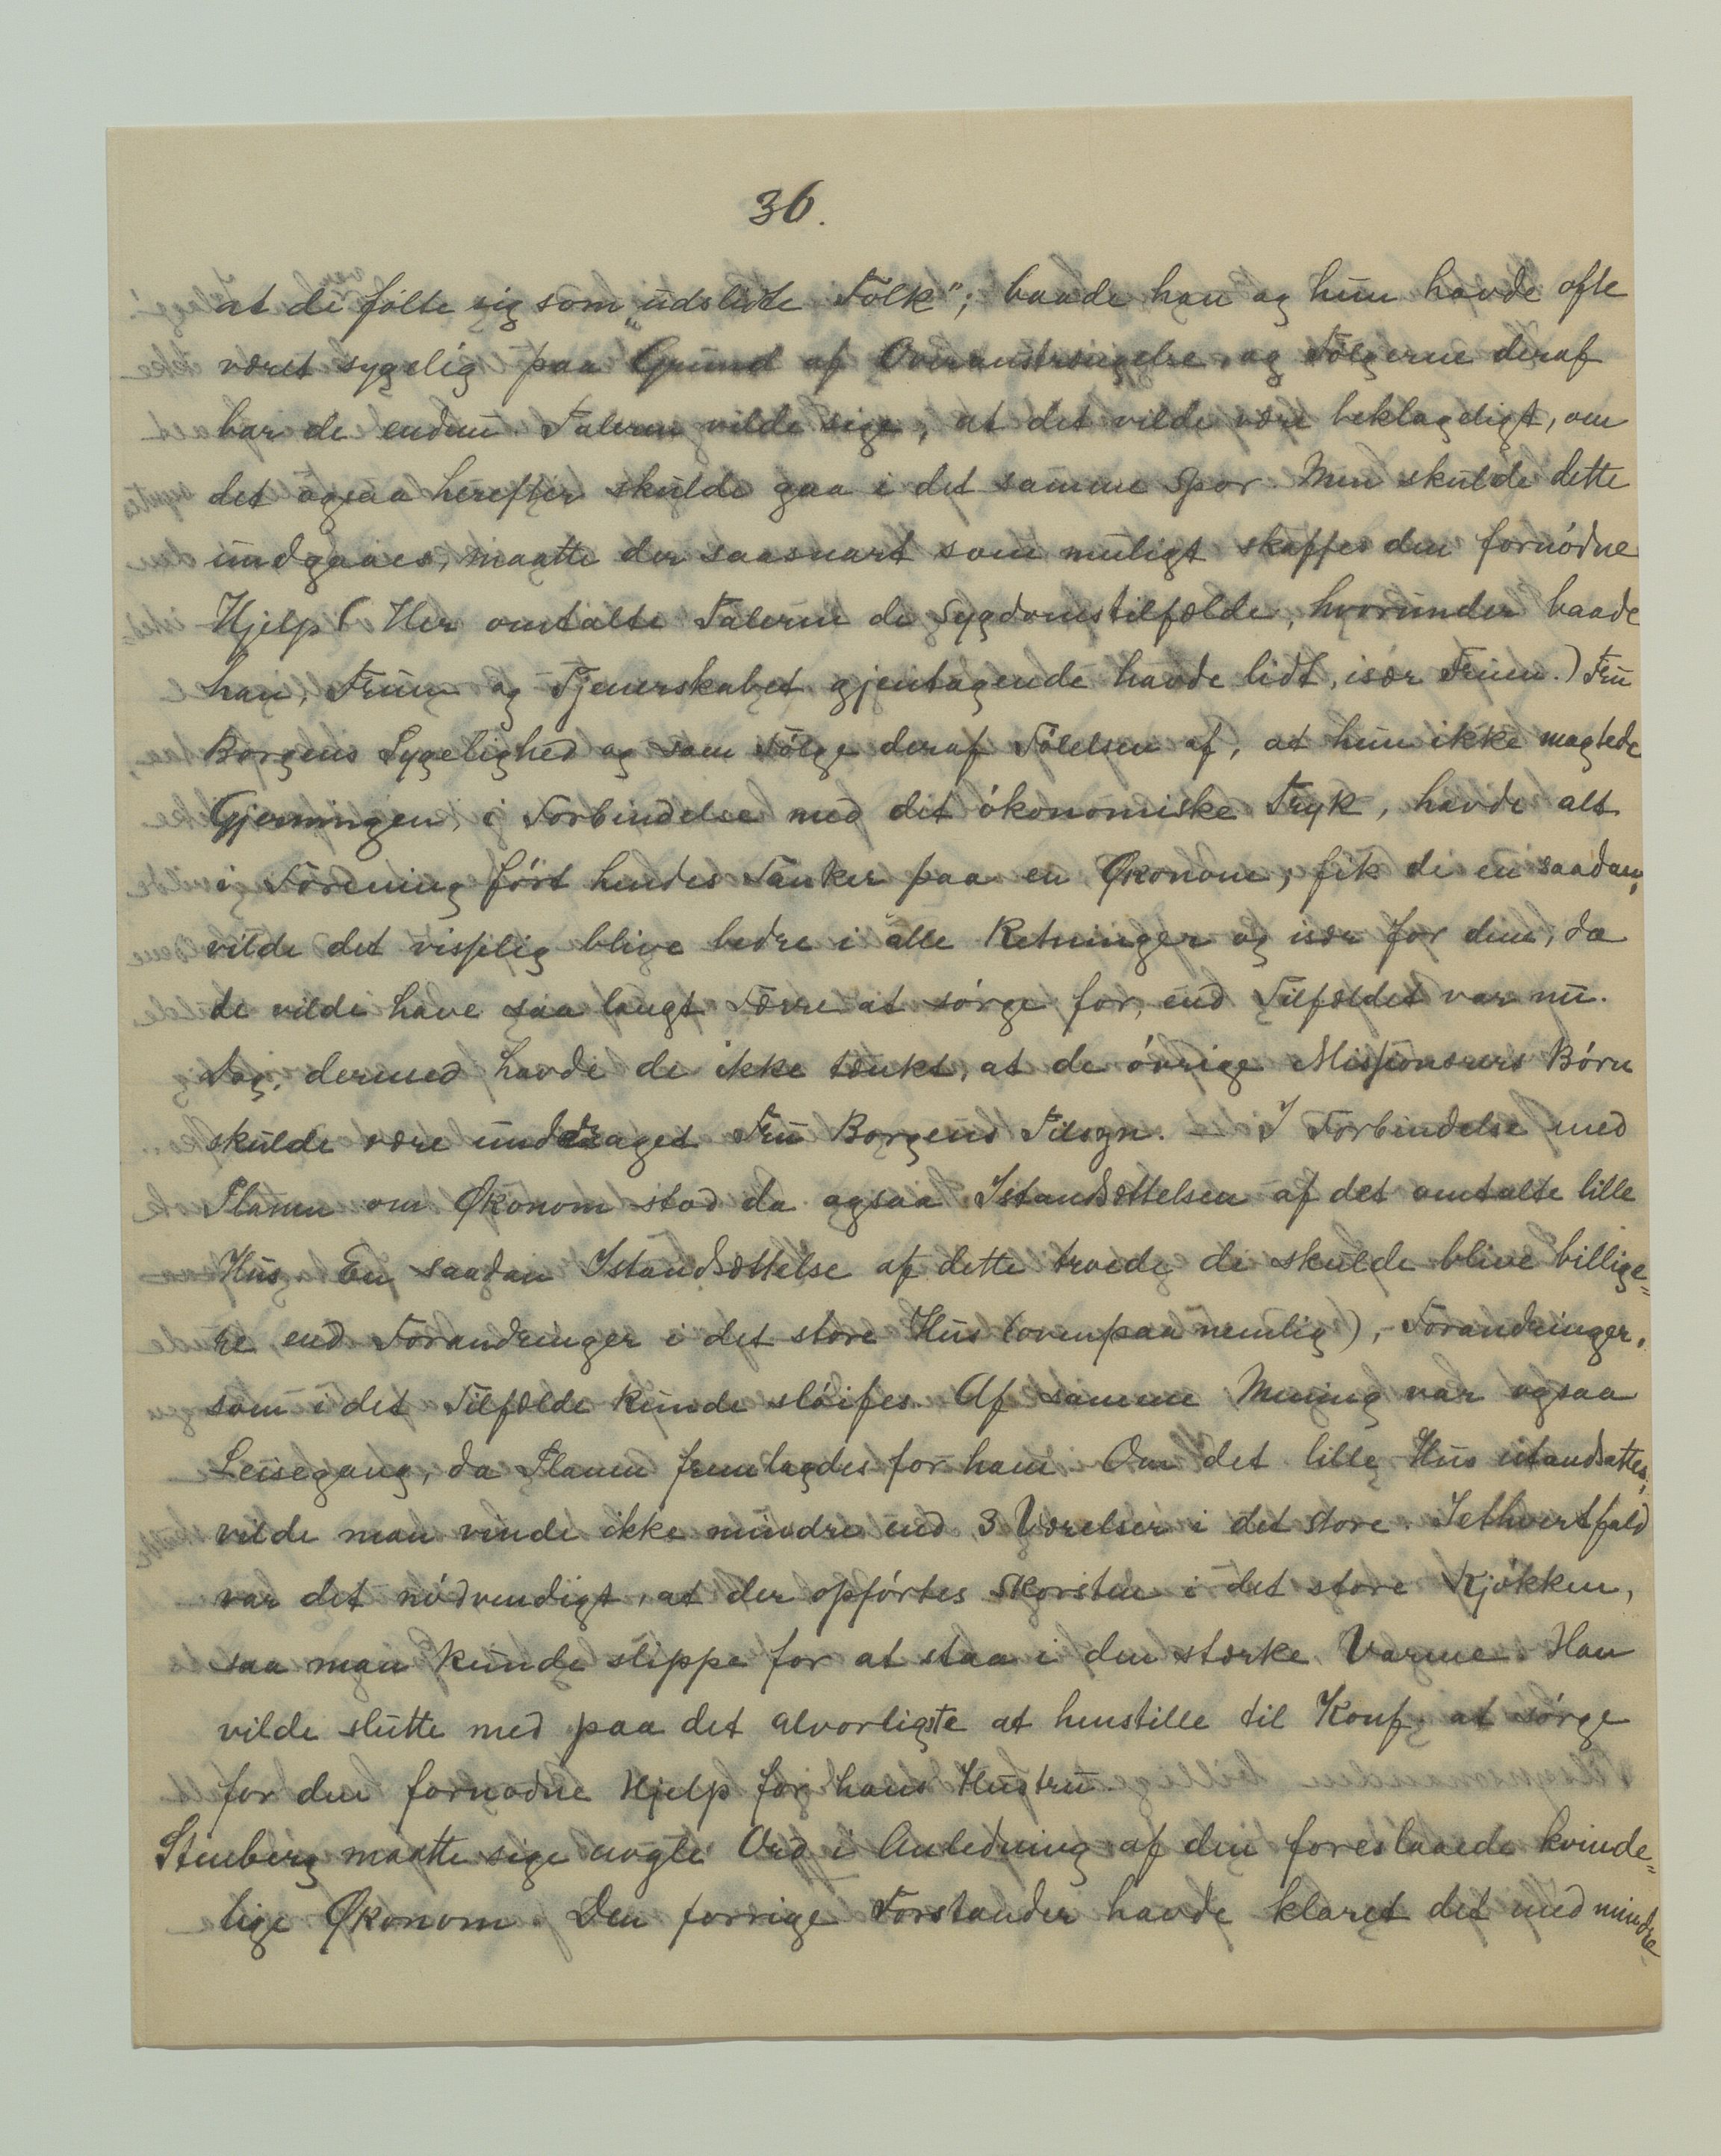 36.
at de følte sig som „udslidte Folk"; baade han og hun havde ofte
været sygelig paa Grund af Overanstrængelse, og Følgerne deraf
bar de endnu. Taleren vilde sige, at det vilde være beklageligt, om
det ogsaa herefter skulde gaa i det samme Spor. Men skulde dette
undgaaes, maatte der saasnart som muligt skaffes den fornødne
Hjelp (Her omtalte Taleren de Sygdomstilfælde, hvorunder baade
han, Fruen og Tjenerskabet gjentagende havde lidt, især Fruen.) Fru
Borgens Sygelighed og som Følge deraf Følelsen af, at hun ikke magtede
Gjerningen, i Forbindelse med det økonomiske Tryk, havde alt
i Forening ført hendes Tanker paa en Økonom; fik de en saadan,
vilde det visselig blive bedre i alle Retninger og især for dem, da
de vilde have saa langt Færre at sørge for, end Tilfældet var nu.
Dog, dermed havde de ikke tænkt, at de øvrige Missionærers Børn
skulde være unddraget Fru Borgens Tilsyn. – I Forbindelse med
Planen om Økonom stod da ogsaa Istandsættelsen af det omtalte lille
Hus. En saadan Istandsættelse af dette troede de skulde blive billige=
re end Forandringer i det store Hus (ovenpaa nemlig), – Forandringer,
som i det Tilfælde kunde sløifes. Af samme Mening var ogsaa
Leisegang, da Planen fremlagdes for ham. Om det lille Hus istandsattes,
vilde man vinde ikke mindre end 3 Værelser i det store. Iethvertfald
var det nødvendigt, at der opførtes Skorsten i det store Kjøkken,
saa man kunde slippe for at staa i den stærke Varme. Han
vilde slutte med paa det alvorligste at henstille til Konf. at sørge
for den fornødne Hjelp for hans Hustru.
Stenberg maatte sige nogle Ord i Anledning af den foreslaaede kvinde=
lige Økonom. Den forrige Forstander havde klaret det med mindre